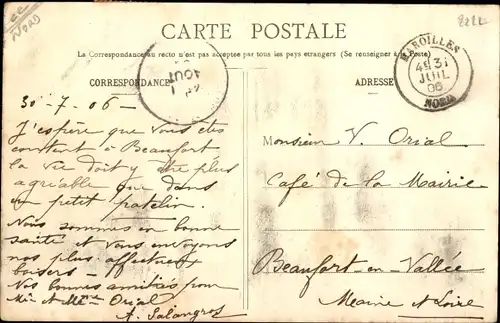 Nord
CARTE POSTALE
La Correspondance au recto n'est pas acceptée par tous les pays étrangers (Se renseigner à la Poste)
CORRESPONDANCE
ADRESSE
MAROILLES
31
JUIL
06
NORD
AOUT
30-7-06-
J'espère que vous êtes
content à Beaufort
la vie doit y être plus
agréable que dans
un petit patelin.
Nous sommes en bonne
santé et vous envoyons
nos plus affectueux
baisers -
Vos bonnes amitiés pour
Mr et Mme Orial
A. Salangros
Monsieur V. Orial
Café de la Mairie
Beaufort-en-Vallée
Maine et Loire